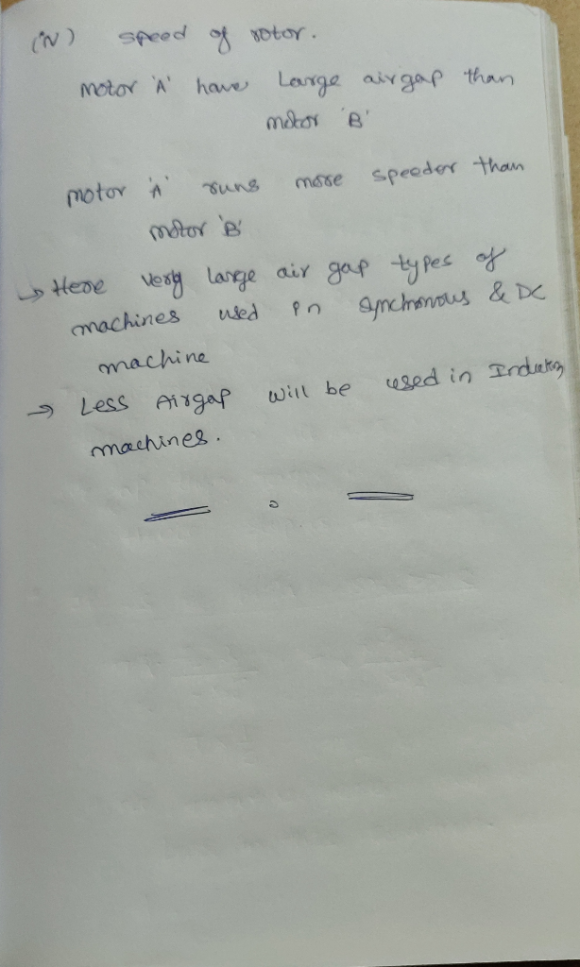 (iv) speed of rotor.
Motor 'A' have Large airgap than
motor 'B'
motor 'A' runs more speeder than
motor 'B'
→ Here very large air gap types of
machines used in synchronous & DC
machine
→ Less Airgap will be used in
machines.